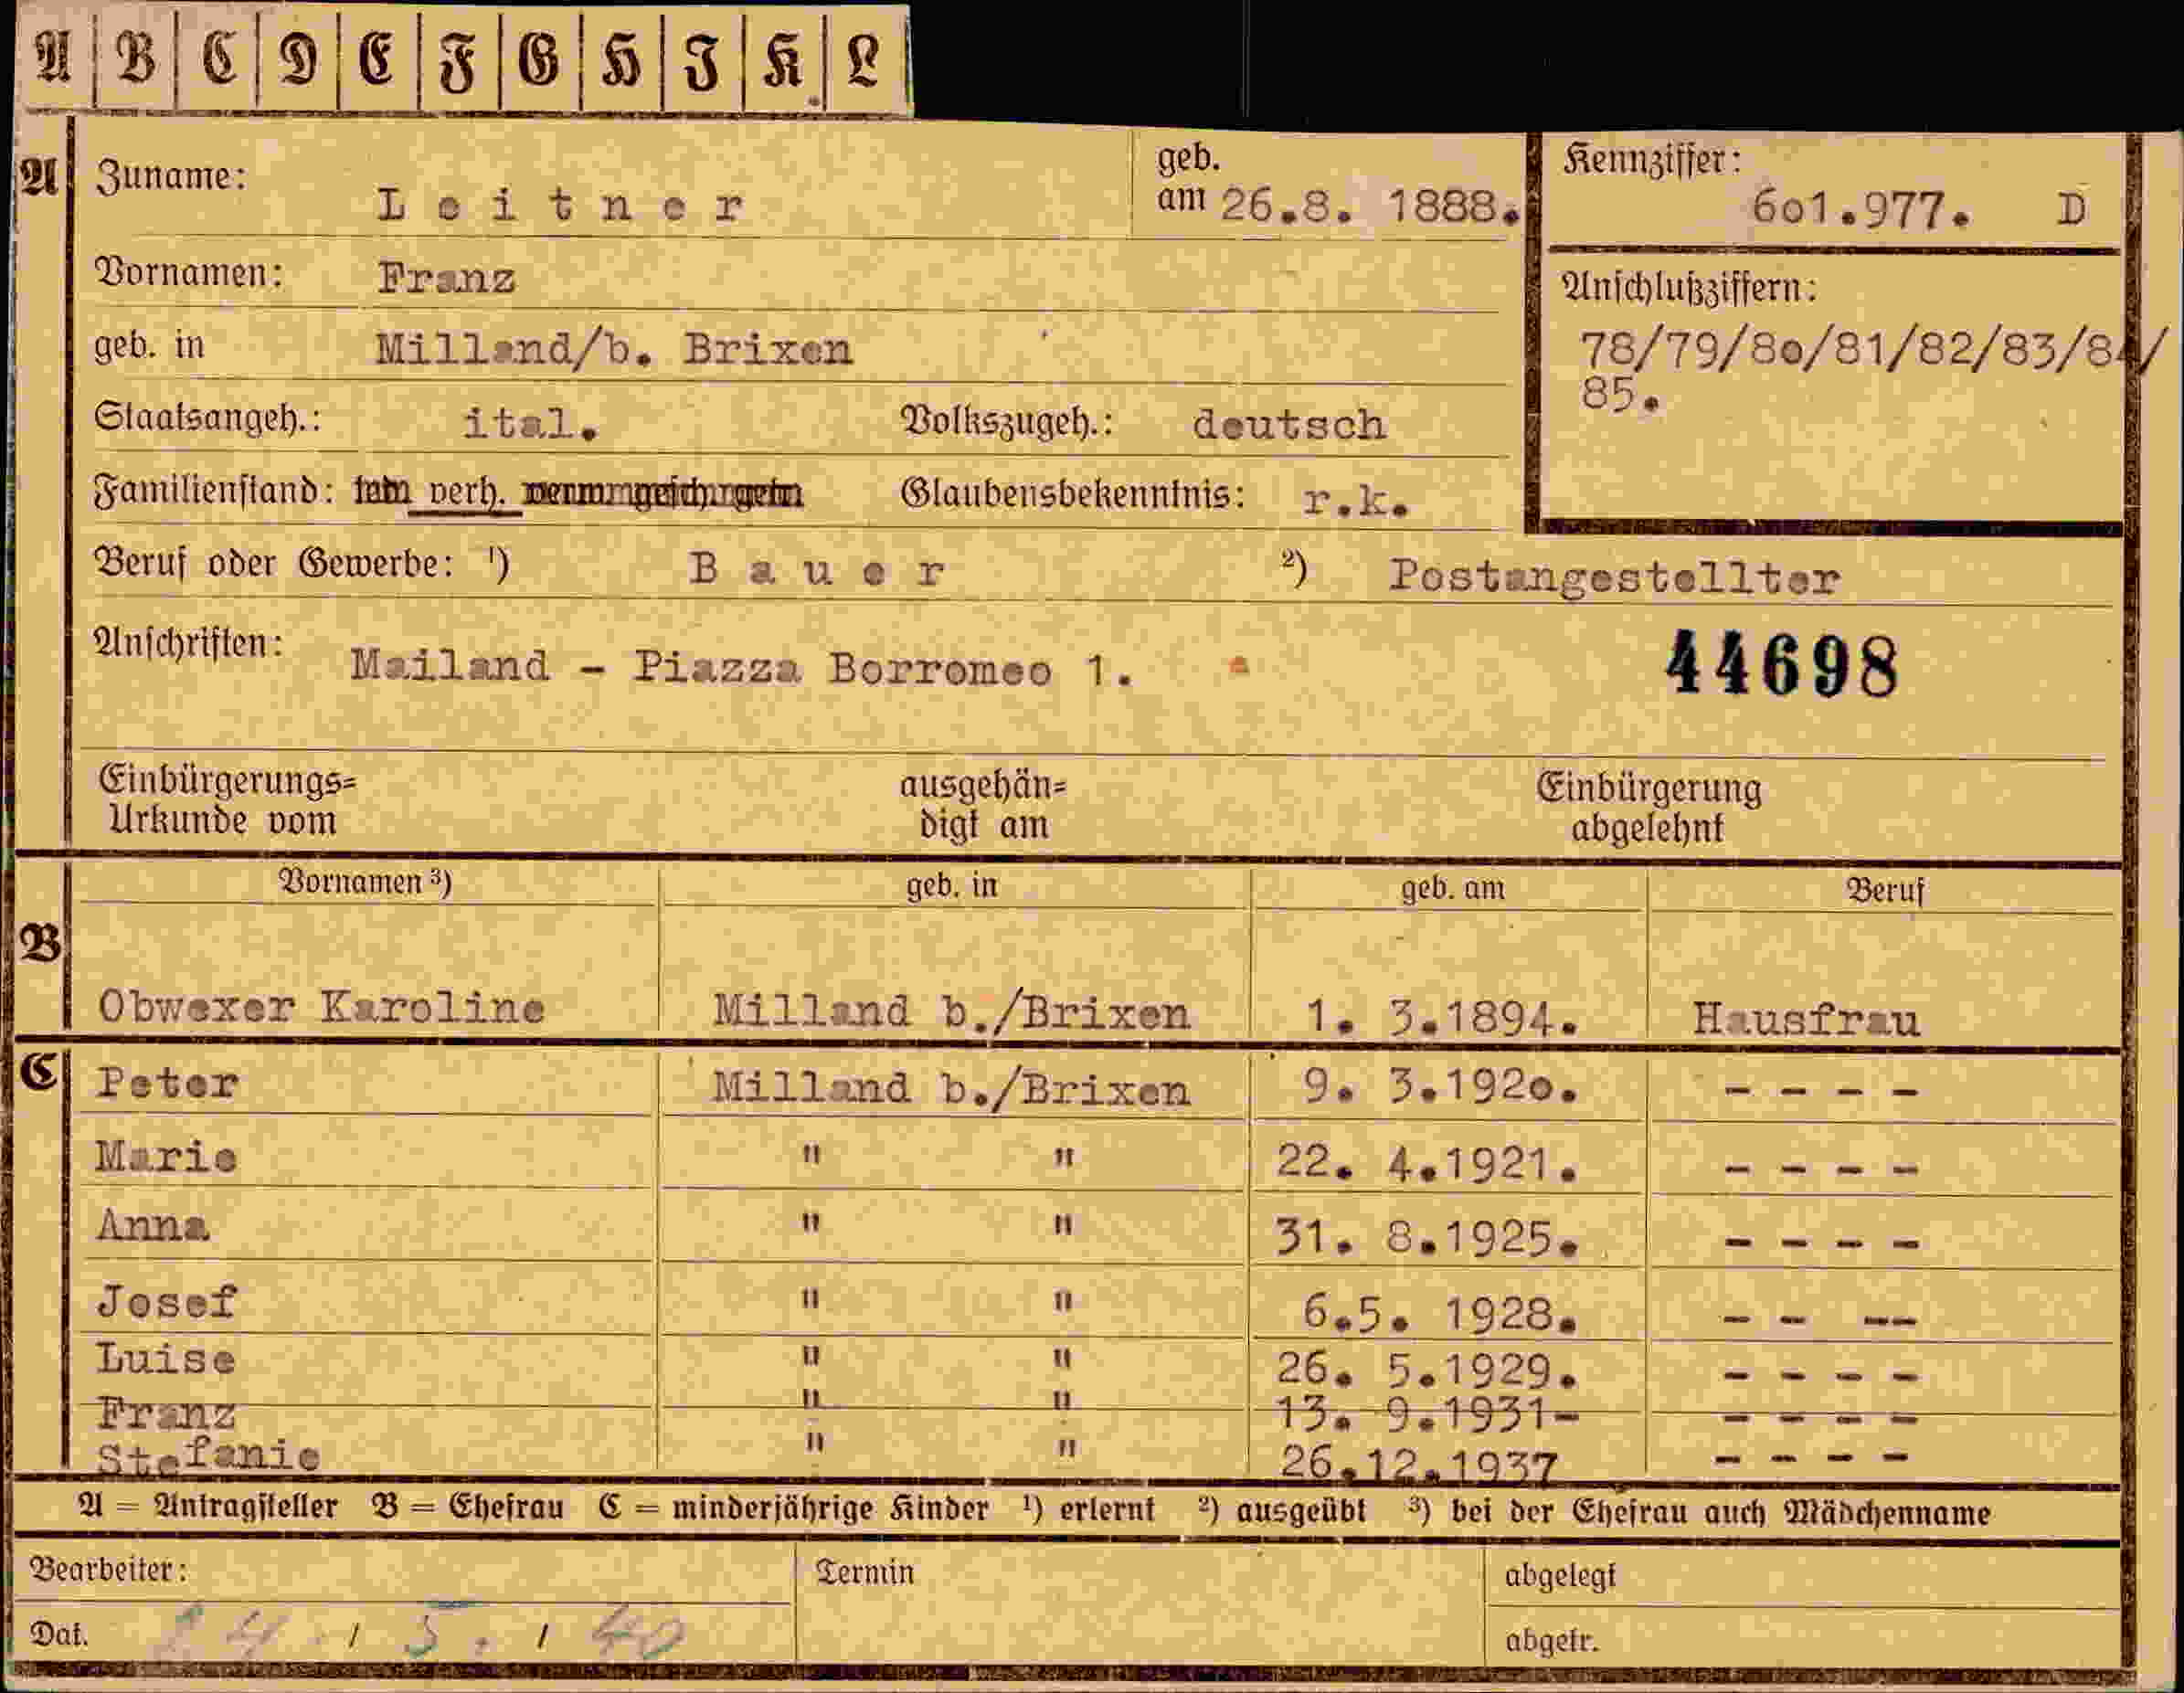 A B C D E F G H I K L
A Zuname: Leitner geb. am 26.8. 1888. Kennziffer: 601.977. D
Vornamen: Franz
Anschlußziffern:
geb. in Milland/b. Brixen 78/79/80/81/82/83/84/
85.
Staatsangeh.: ital. Volkszugeh.: deutsch
Familienstand: verh. Glaubensbekenntnis: r.k.
Beruf oder Gewerbe: ¹) Bauer ²) Postangestellter
Anschriften: Mailand - Piazza Borromeo 1. 44698
Einbürgerungs= ausgehän= Einbürgerung
Urkunde vom digt am abgelehnt
Vornamen ³) geb. in geb. am Beruf
B Obwexer Karoline Milland b./Brixen 1. 3.1894. Hausfrau
C Peter Milland b./Brixen 9. 3.1920. - - - -
Marie " " 22. 4.1921. - - - -
Anna " " 31. 8.1925. - - - -
Josef " " 6.5. 1928. - - --
Luise " " 26. 5.1929. - - - -
Franz " " 13. 9.1931- - - - -
Stefanie " " 26.12.1937 - - - -
A = Antragsteller B = Ehefrau C = minderjährige Kinder ¹) erlernt ²) ausgeübt ³) bei der Ehefrau auch Mädchenname
Bearbeiter: Termin abgelegt
Dat. 24. / 5. / 40 abgetr.